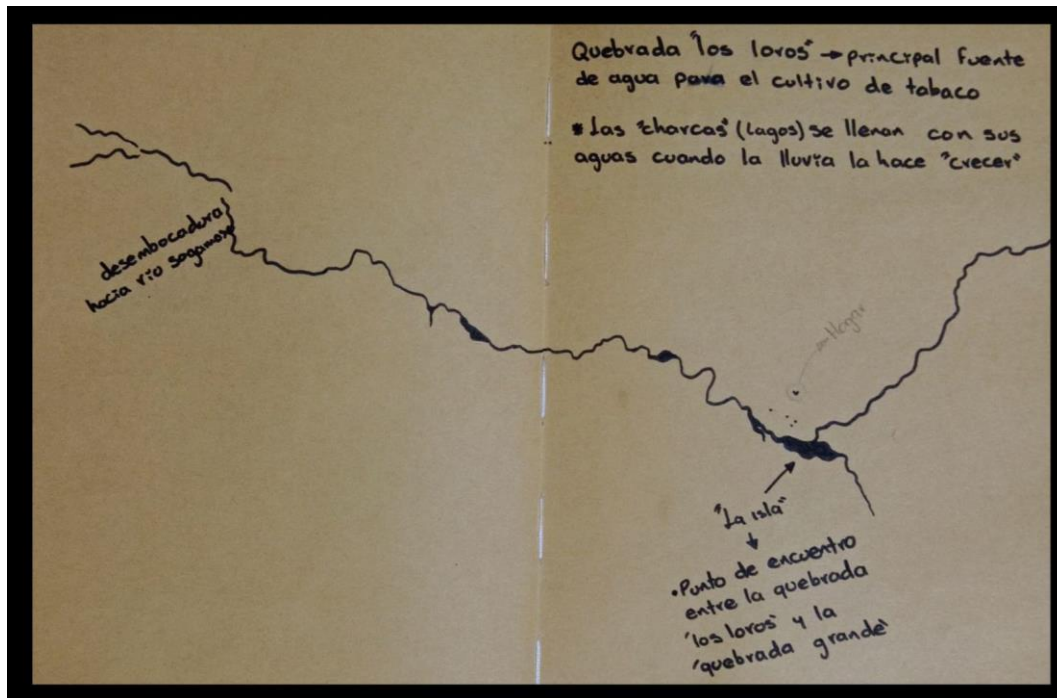 Quebrada "los loros" → principal fuente
de agua para el cultivo de tabaco
* Las "charcas" (lagos) se llenan con sus
aguas cuando la lluvia la hace "crecer"
desembocadura
hacia río sogamoso
Hogar
"La isla"
• Punto de encuentro
entre la quebrada
"los loros" y la
"quebrada grande"